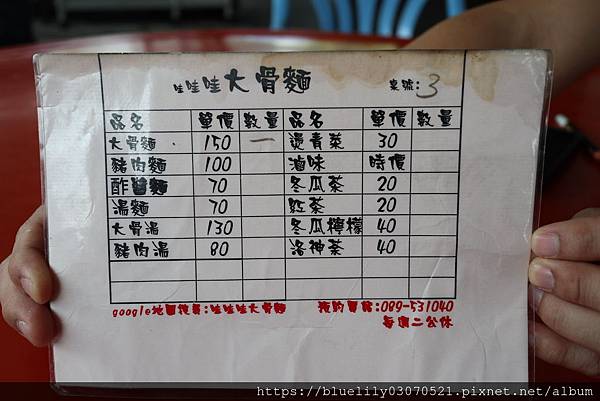 哇哇哇大骨麵 桌號:3
品名 單價 數量 品名 單價 數量
大骨麵 150 一 燙青菜 30
豬肉麵 100 滷味 時價
酢醬麵 70 冬瓜茶 20
湯麵 70 紅茶 20
大骨湯 130 冬瓜檸檬 40
豬肉湯 80 洛神茶 40
google地圖搜尋:哇哇哇大骨麵 預約電話:089-531040
每週二公休
https://bluelily03070521.pixnet.net/album